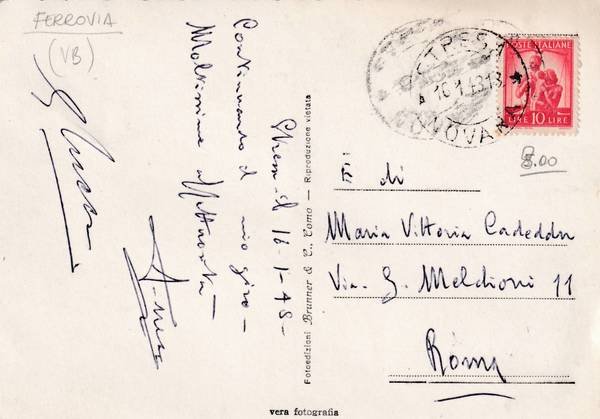 FERROVIA
(VB)
Stresa il 16-1-48-
Continuando il mio giro-
Moltissime
STRESA
16.1.48.13
NOVARA
POSTE ITALIANE
LIRE 10 LIRE
8.00
È di
Maria Vittoria Cadeddu
Via G. Meldioni 11
Roma
Fotoedizioni Brunner & C., Como — Riproduzione vietata
vera fotografia